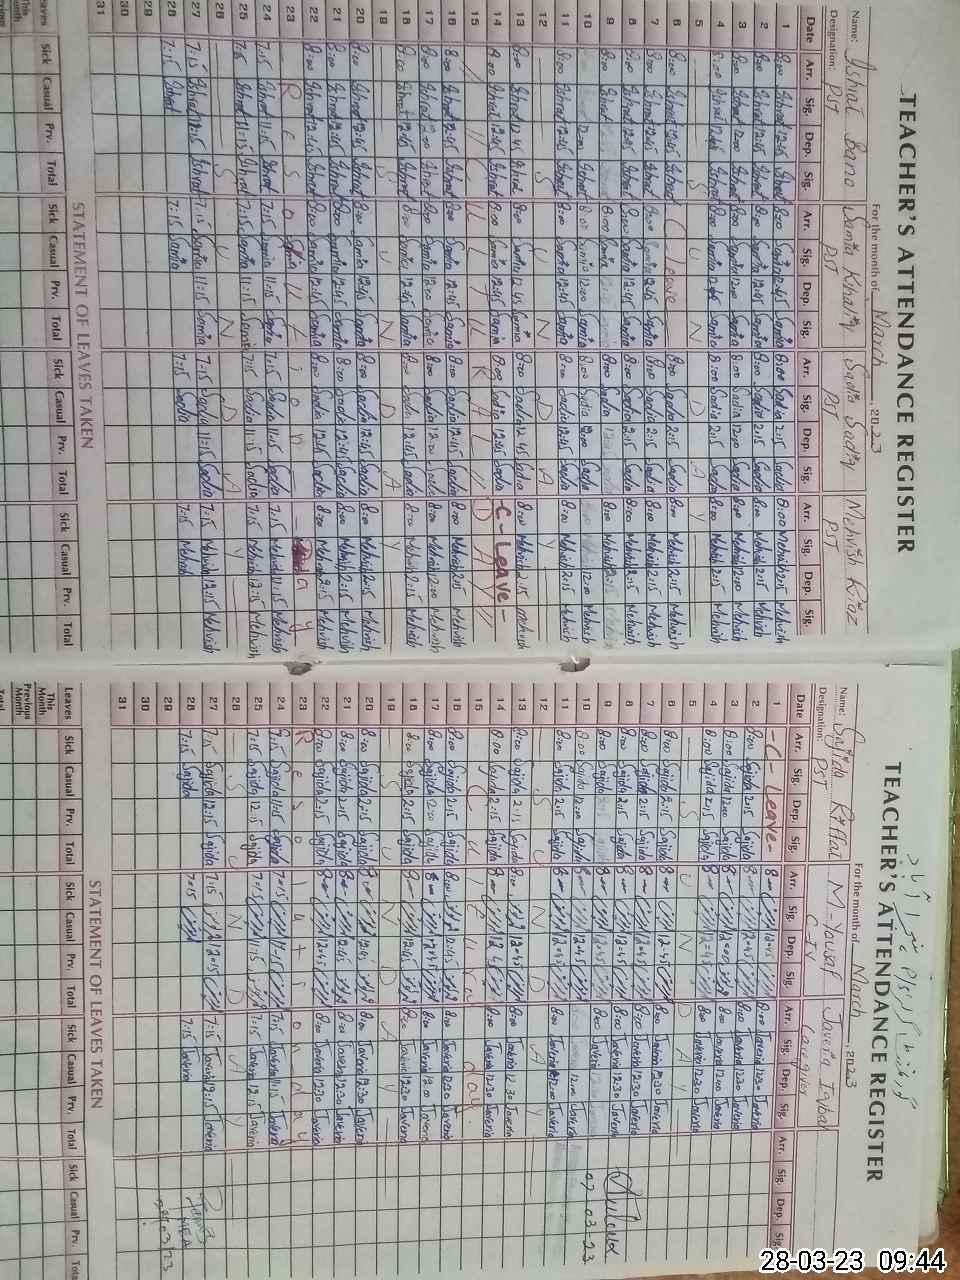 TEACHER'S ATTENDANCE REGISTER
For the month of March, 2023
Name: Ishrat Bano Samia Khaliq Sadia Sadiq Mehvish Riaz
Designation: PST PST PST PST
Date Arr. Sig. Dep. Sig. Arr. Sig. Dep. Sig. Arr. Sig. Dep. Sig. Arr. Sig. Dep. Sig.
1 8:00 Ishrat 12:45 Ishrat 8:00 Samia 12:45 Samia 8:00 Sadia 2:15 Sadia 8:00 Mehvish 2:15 Mehvish
2 8:00 Ishrat 12:45 Ishrat 8:00 Samia 12:45 Samia 8:00 Sadia 2:15 Sadia 8:00 Mehvish 2:15 Mehvish
3 8:00 Ishrat 12:00 Ishrat 8:00 Samia 12:00 Samia 8:00 Sadia 12:00 Sadia 8:00 Mehvish 12:00 Mehvish
4 8:00 Ishrat 12:45 Ishrat 8:00 Samia 12:45 Samia 8:00 Sadia 2:15 Sadia 8:00 Mehvish 2:15 Mehvish
5 S U N D A Y
6 8:00 Ishrat 12:45 Ishrat C-leave 8:00 Sadia 2:15 Sadia 8:00 Mehvish 2:15 Mehvish
7 8:00 Ishrat 12:45 Ishrat 8:00 Samia 12:45 Samia 8:00 Sadia 2:15 Sadia 8:00 Mehvish 2:15 Mehvish
8 8:00 Ishrat 12:45 Ishrat 8:00 Samia 12:45 Samia 8:00 Sadia 2:15 Sadia 8:00 Mehvish 2:15 Mehvish
9 8:00 Ishrat 8:00 Samia 8:00 Sadia 8:00 Mehvish
10 12:00 Ishrat 8:00 Samia 12:00 Samia 8:00 Sadia 12:00 Sadia 12:00 Mehvish
11 8:00 Ishrat 12:45 Ishrat 8:00 Samia 12:45 Samia 8:00 Sadia 12:45 Sadia 8:00 Mehvish 2:15 Mehvish
12 S U N D A Y
13 8:00 Ishrat 12:45 Ishrat 8:00 Samia 12:45 Samia 8:00 Sadia 12:45 Sadia 8:00 Mehvish 2:15 Mehvish
14 8:00 Ishrat 12:45 Ishrat 8:00 Samia 12:45 Samia 8:00 Sadia 12:45 Sadia -C- Leave-
15 C U L T U R A L D A Y
16 8:00 Ishrat 12:45 Ishrat 8:00 Samia 12:45 Samia 8:00 Sadia 12:45 Sadia 8:00 Mehvish 2:15 Mehvish
17 8:00 Ishrat 12:00 Ishrat 8:00 Samia 12:00 Samia 8:00 Sadia 12:00 Sadia 8:00 Mehvish 12:00 Mehvish
18 8:00 Ishrat 12:45 Ishrat 8:00 Samia 12:45 Samia 8:00 Sadia 12:45 Sadia 8:00 Mehvish 2:15 Mehvish
19 S U N D A Y
20 8:00 Ishrat 12:45 Ishrat 8:00 Samia 12:45 Samia 8:00 Sadia 12:45 Sadia 8:00 Mehvish 2:15 Mehvish
21 8:00 Ishrat 12:45 Ishrat 8:00 Samia 12:45 Samia 8:00 Sadia 12:45 Sadia 8:00 Mehvish 2:15 Mehvish
22 8:00 Ishrat 12:45 Ishrat 8:00 Samia 12:45 Samia 8:00 Sadia 12:45 Sadia 8:00 Mehvish 2:15 Mehvish
23 R e s o l u t i o n - D a y
24 7:15 Ishrat 11:15 Ishrat 7:15 Samia 11:15 Samia 7:15 Sadia 11:15 Sadia 7:15 Mehvish 11:15 Mehvish
25 7:15 Ishrat 11:15 Ishrat 7:15 Samia 11:15 Samia 7:15 Sadia 11:15 Sadia 7:15 Mehvish 12:15 Mehvish
26 S U N D A Y
27 7:15 Ishrat 12:15 Ishrat 7:15 Samia 11:15 Samia 7:15 Sadia 11:15 Sadia 7:15 Mehvish 12:15 Mehvish
28 7:15 Ishrat 7:15 Samia 7:15 Sadia 7:15 Mehvish
29
30
31
STATEMENT OF LEAVES TAKEN
Leaves Sick Casual Prv. Total Sick Casual Prv. Total Sick Casual Prv. Total Sick Casual Prv. Total
This Month
Previous
TEACHER'S ATTENDANCE REGISTER
For the month of March, 2023
Name: Sajida Riffat M-Yousaf Javeria Iqbal
Designation: PST C-IV Caregiver
Date Arr. Sig. Dep. Sig. Arr. Sig. Dep. Sig. Arr. Sig. Dep. Sig. Arr. Sig. Dep. Sig.
1 -C- Leave- 8:00 12:45 8:00 Javeria 12:30 Javeria
2 8:00 Sajida 2:15 Sajida 8:00 12:45 8:00 Javeria 12:30 Javeria
3 8:00 Sajida 12:00 Sajida 8:00 8:00 Javeria 12:00 Javeria
4 8:00 Sajida 2:15 Sajida 8:00 12:45 8:00 Javeria 12:30 Javeria
5 S U N D A Y
6 8:00 Sajida 2:15 Sajida 8:00 12:45 8:00 Javeria 12:30 Javeria
7 8:00 Sajida 2:15 Sajida 8:00 12:45 8:00 Javeria 12:30 Javeria
8 8:00 Sajida 2:15 Sajida 8:00 12:45 8:00 Javeria 12:30 Javeria
9 8:00 Sajida 8:00 12:45 8:00 Javeria
10 8:00 Sajida 12:00 Sajida 8:00 12:45 12:00 Javeria
07-03-23
11 8:00 Sajida 2:15 Sajida 8:00 12:45 8:00 Javeria 12:00 Javeria
12 S U N D A Y
13 8:00 Sajida 2:15 Sajida 8:00 12:45 8:00 Javeria 12:30 Javeria
14 8:00 Sajida 2:15 Sajida 8:00 12:45 8:00 Javeria 12:30 Javeria
15 C u l t u r a l d a y
16 8:00 Sajida 2:15 Sajida 8:00 12:45 8:00 Javeria 12:30 Javeria
17 8:00 Sajida 12:00 Sajida 8:00 12:45 8:00 Javeria 12:00 Javeria
18 8:00 Sajida 2:15 Sajida 8:00 12:45 8:00 Javeria 12:30 Javeria
19 S U N D A Y
20 8:00 Sajida 2:15 Sajida 8:00 12:45 8:00 Javeria 12:30 Javeria
21 8:00 Sajida 2:15 Sajida 8:00 12:45 8:00 Javeria 12:30 Javeria
22 8:00 Sajida 2:15 Sajida 8:00 12:45 8:00 Javeria 12:30 Javeria
23 R e s o l u t i o n d a y
24 7:15 Sajida 11:15 Sajida 7:15 11:15 7:15 Javeria 11:15 Javeria
25 7:15 Sajida 12:15 Sajida 7:15 11:15 7:15 Javeria 12:15 Javeria
26 S U N D A Y
27 7:15 Sajida 12:15 Sajida 7:15 12:15 7:15 Javeria 12:15 Javeria
28 7:15 Sajida 7:15 7:15 Javeria
MEA
28/03/23
29
30
31
STATEMENT OF LEAVES TAKEN
Leaves Sick Casual Prv. Total Sick Casual Prv. Total Sick Casual Prv. Total Sick Casual Prv. Total
This Month
Previous Month
Total
28-03-23 09:44